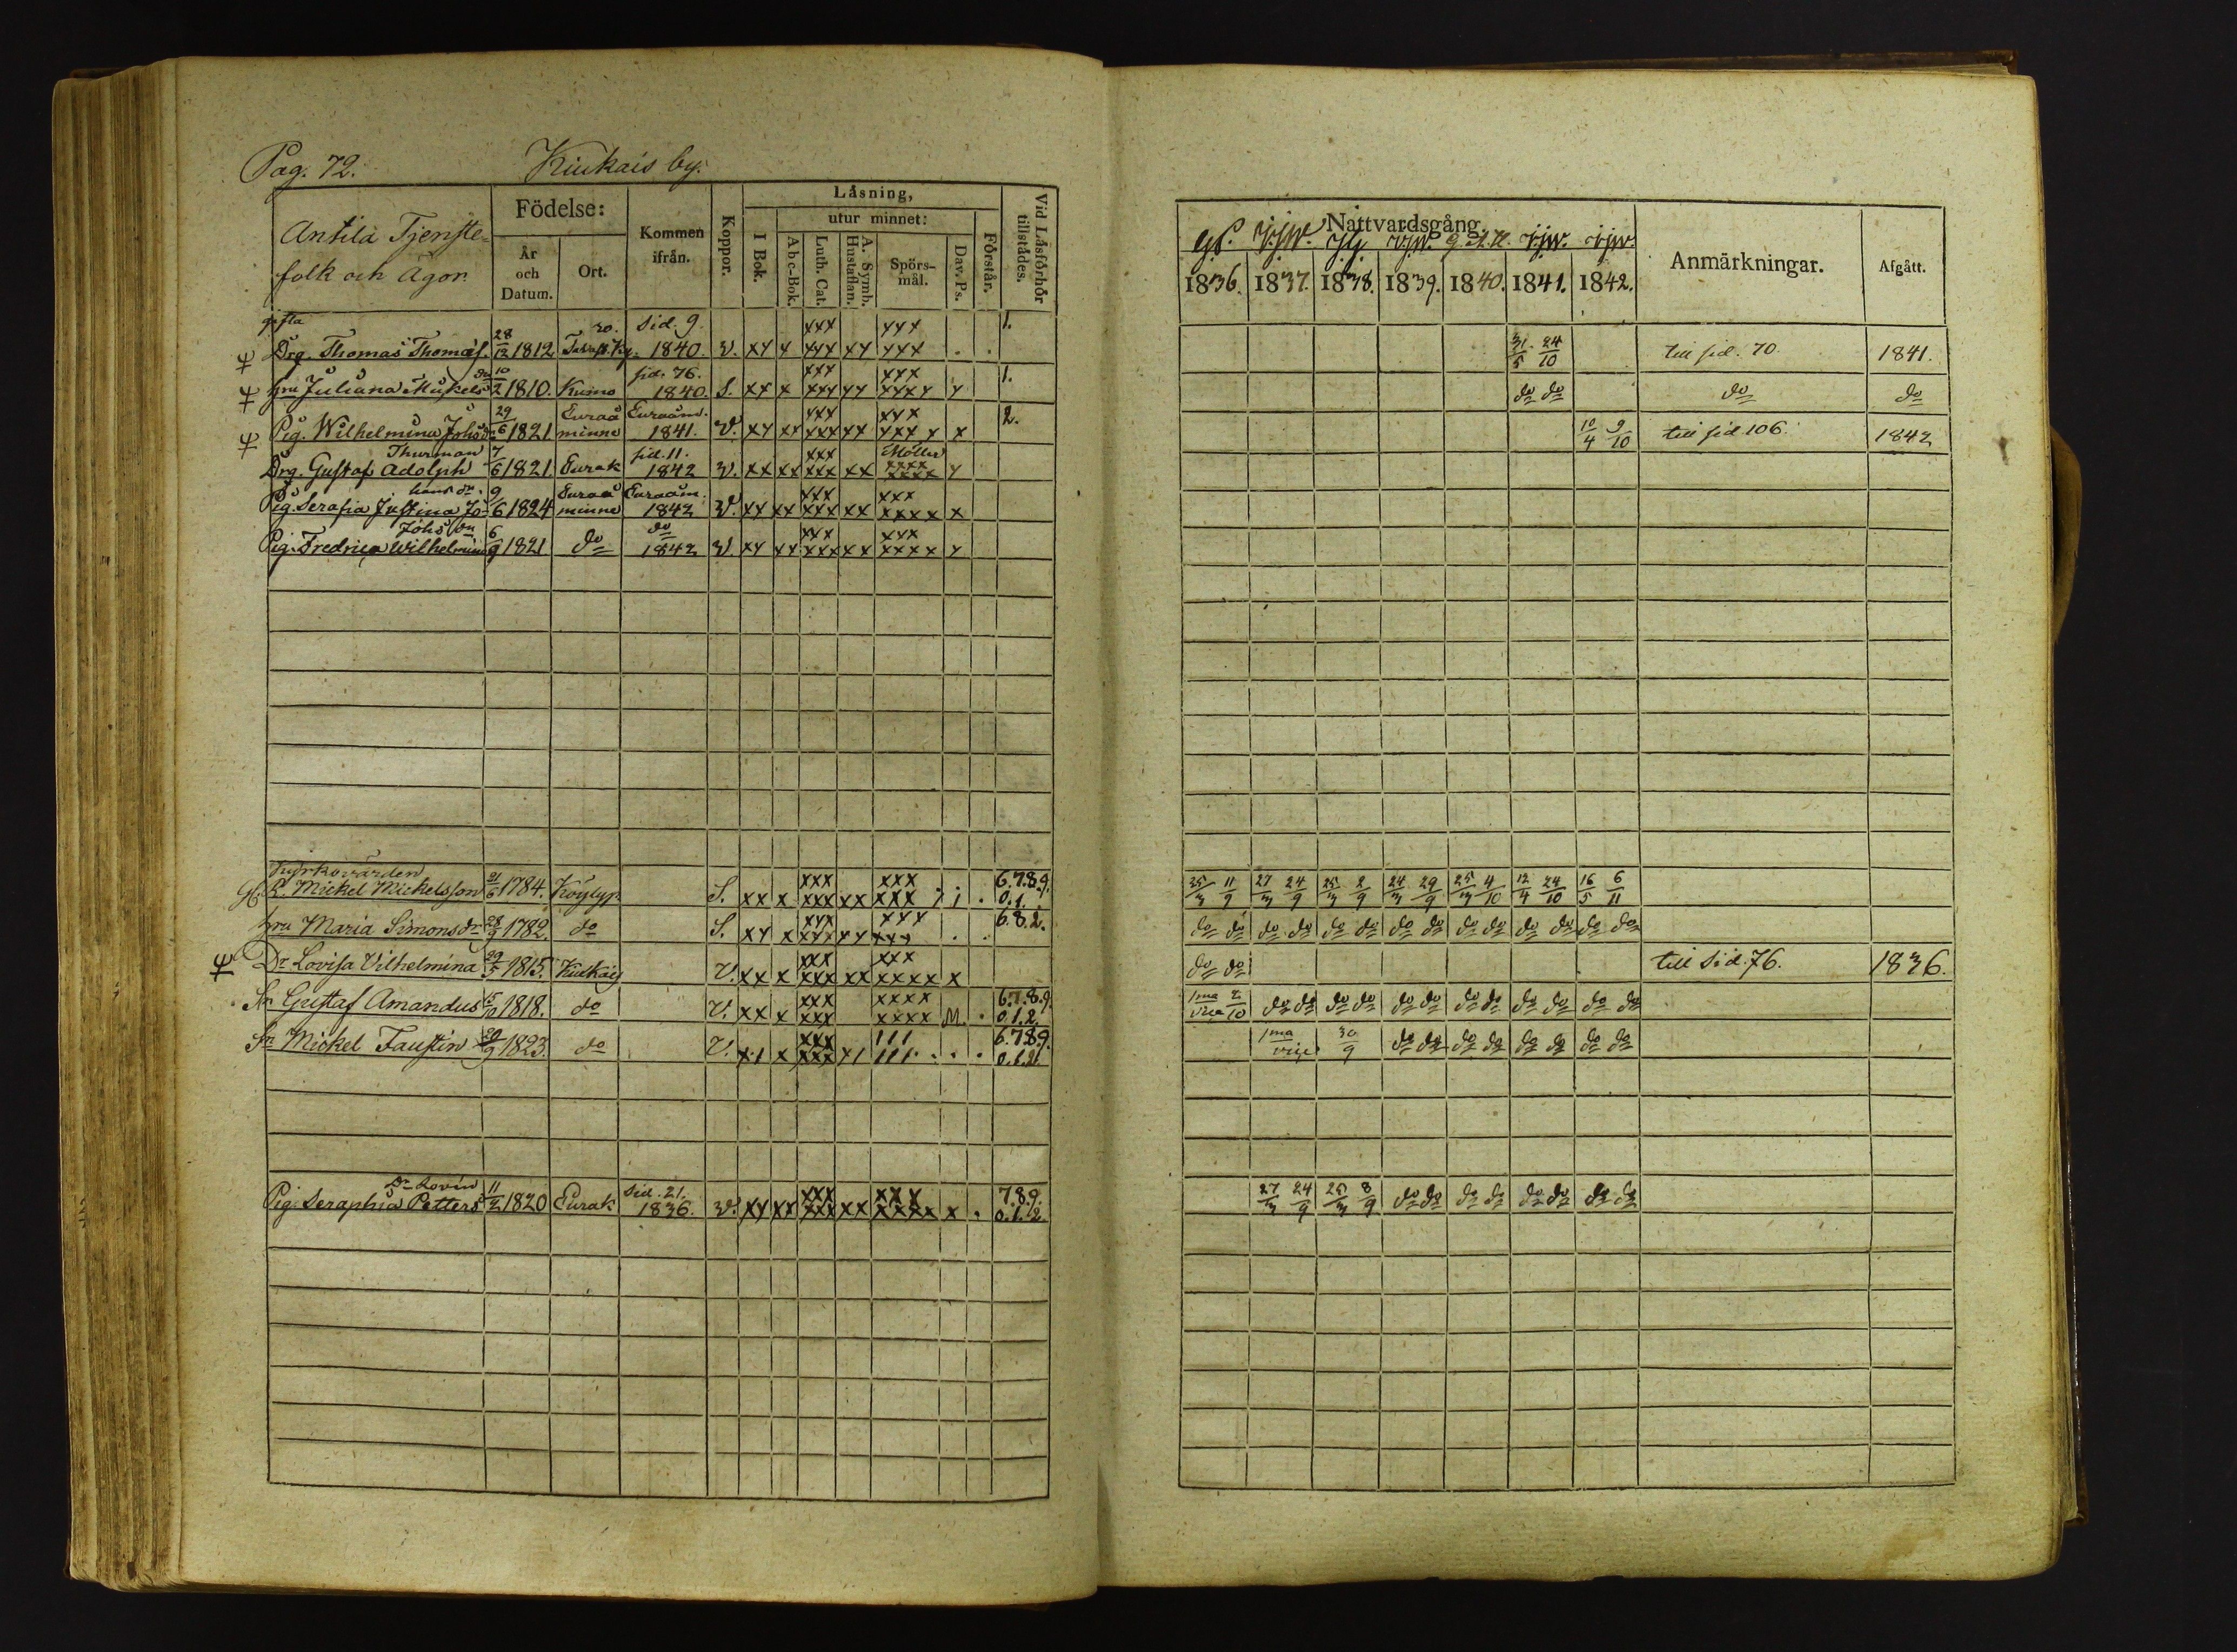 Pag. 72. Kiukais by.
Antila Tjenste-
folk och Ägor.
Födelse:
År
och
Datum.
Ort.
Kommen
ifrån.
Koppor.
Låsning,
I Bok.
utur minnet:
Abc-Bok.
Luth. Cat.
A. Symb.
Hustaflan.
Spörs-
mål.
Dav. Ps.
Förstår.
Vid Låsförhör
tillstädes.
Nattvardsgång.
1836. 1837. 1838. 1839. 1840. 1841. 1842.
Anmärkningar.
Afgått.
gifta sid. 9. xxx xxx 1.
Drg. Thomas Thomæs. 28/12 1812 1840. v. xx x xxx xx xxx 31/5 24/10 till sid. 70. 1841.
dr sid. 76. xxx xxx 1.
hu Juliana Mickels 10/2 1810. Kumo 1840. S. xx x xxx xx xxxx x do do do do
Euraå Euraåm. xxx xxx 2.
Pig. Wilhelmina Johsd. 29/6 1821. minne 1841. V. xx xx xxx xx xxx x x 10/4 9/10 till sid 106. 1842
Thurman sid. 11. xxx
Drg. Gustaf Adolph 7/6 1821. Eurak 1842 v. xx xx xxx xx xxxx x
Euraå Euraåm. xxx xxx
Pig. Serafia Justina 9/6 1824 minne 1842 V. xx xx xxx xx xxxx x
Johs dr do xxx xxx
Pig. Fredrica Wilhelmina 6/9 1821 do 1842 v. xx xx xxx xx xxxx x
Kyrkovärden xxx xxx 6.7.8.9.
B. Mickel Mickelsson 21/6 1784. Köylyp. S. xx x xxx xx xxx 0.1. 25/3 11/9 27/3 24/9 25/3 2/9 24/3 29/9 25/3 4/10 12/4 24/10 16/5 6/11
xxx xxx 6.8.2.
hu Maria Simonsdr 28/9 1782. do S. xx x xxx xx xxx do do do do do do do do do do do do do do
xxx xxx
Dr Lovisa Vilhelmina 29/5 1815. Kiukais V. xx x xxx xx xxxx x do do till sid. 76. 1836.
xxx xxxx 6.7.8.9.
Sn Gustaf Amandus 1818. do V. xx x xxx xxxx M. 0.1.2. 1ma vice 2/10 do do do do do do do do do do do do
xxx 111 6.7.8.9.
Sn Mickel Faustin 1823. do V. x1 x xxx x1 111 0.1.2. 1ma vice 30/9 do do do do do do do do
Dr Lovin sid. 21. xxx xxx 7.8.9.
Pig. Seraphia Petters 11/2 1820 Eurak 1836. v. xx xx xxx xx xxxx x 0.1.2. 27/3 24/9 25/3 8/9 do do do do do do do do